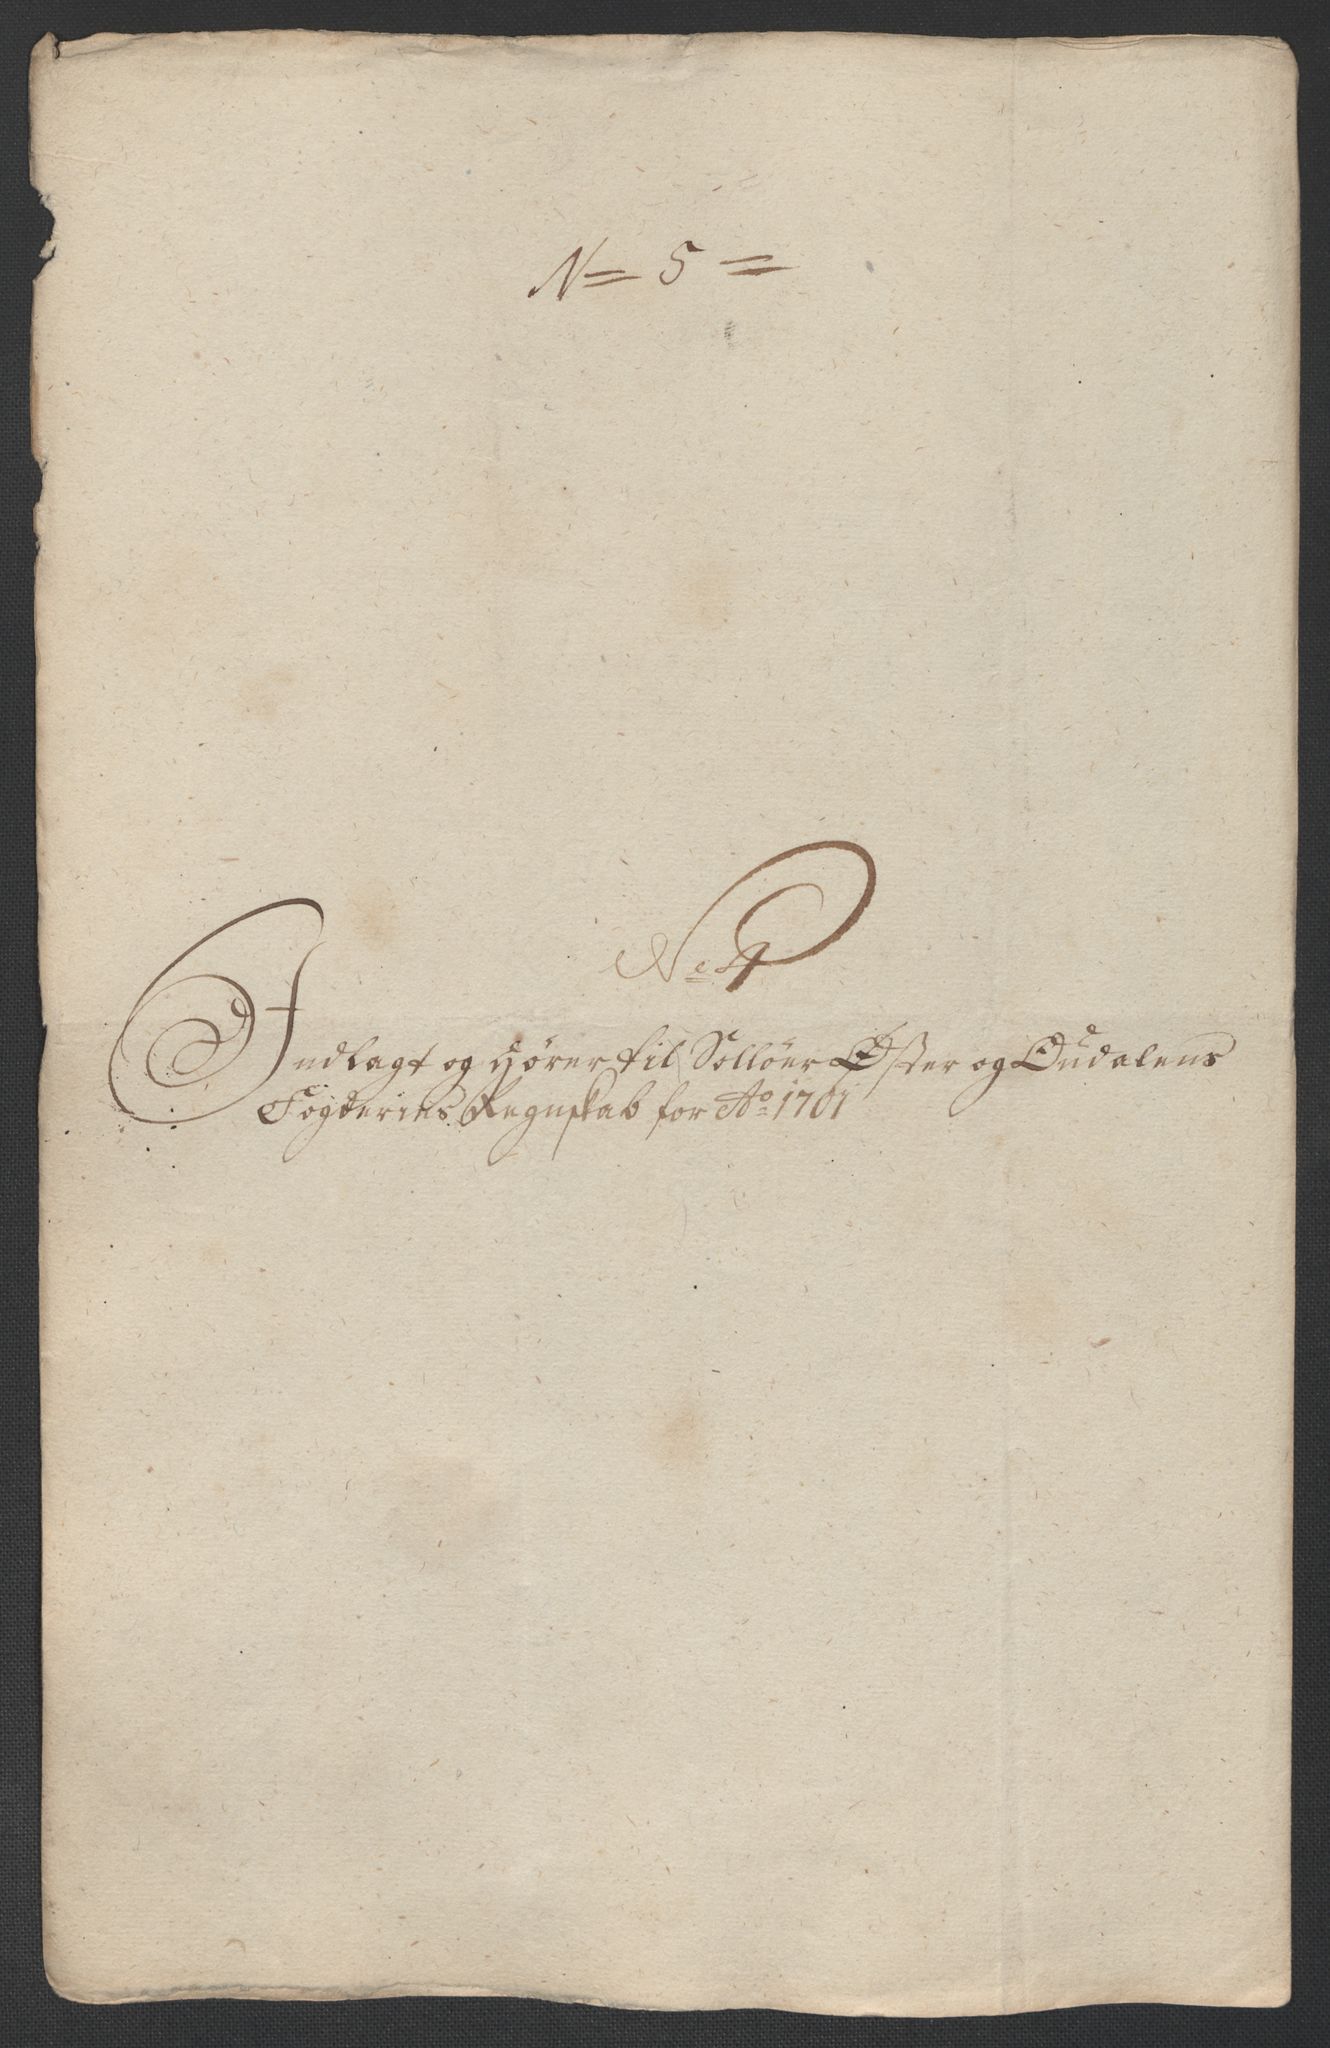 N= 5 =
No 4
Indlagt og hører til Solløer Øster og Oudalens
Fogderies Regnskab for Ao 1701